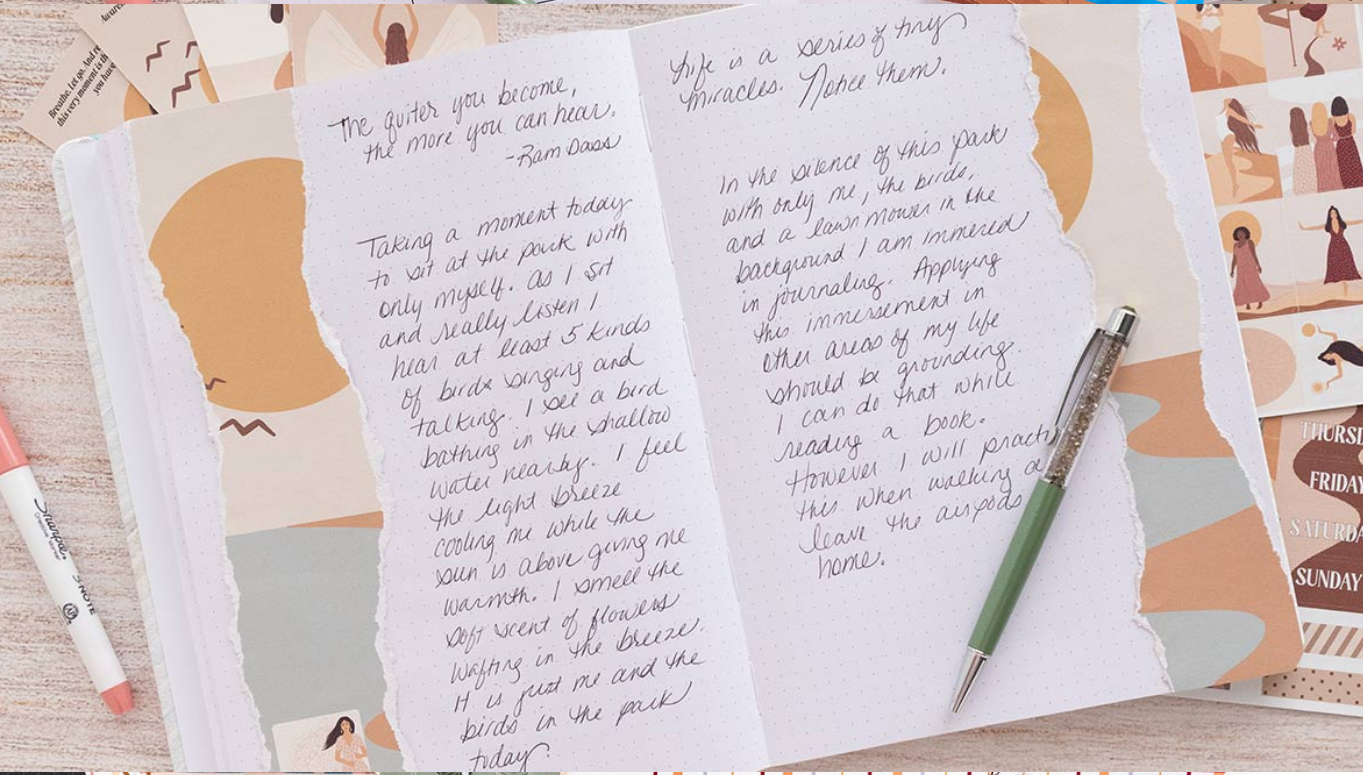 Breathe. Let go. And r
this very moment is th
you have
The quiter you become,
the more you can hear.
-Ram Dass
Taking a moment today
to sit at the park with
only myself. As I sit
and really listen I
hear at least 5 kinds
of birds singing and
talking. I see a bird
bathing in the shallow
water nearby. I feel
the light breeze
cooling me while the
sun is above giving me
warmth. I smell the
soft scent of flowers
wafting in the breeze.
It is just me and the
birds in the park
today.
Life is a series of tiny
miracles. Notice them.
In the silence of this park
with only me, the birds,
and a lawn mower in the
background I am immered
in journaling. Applying
this immersement in
other areas of my life
should be grounding.
I can do that while
reading a book.
However I will practi
this when walking a
leave the airpods
home.
Sharpie
S·NOTE
THURSD
FRIDAY
SATURDA
SUNDAY